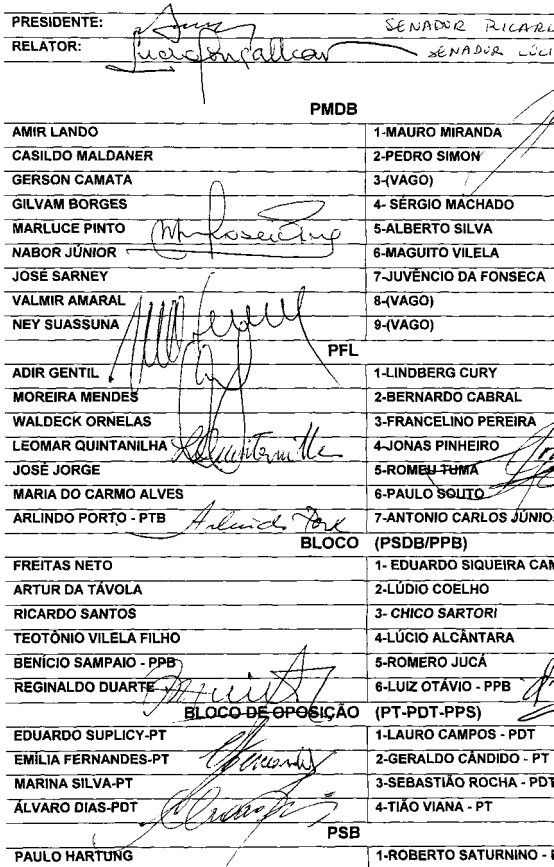 PRESIDENTE: SENADOR RICARD
RELATOR: SENADOR LÚCI
PMDB
AMIR LANDO 1-MAURO MIRANDA
CASILDO MALDANER 2-PEDRO SIMON
GERSON CAMATA 3-(VAGO)
GILVAM BORGES 4- SÉRGIO MACHADO
MARLUCE PINTO 5-ALBERTO SILVA
NABOR JÚNIOR 6-MAGUITO VILELA
JOSÉ SARNEY 7-JUVÊNCIO DA FONSECA
VALMIR AMARAL 8-(VAGO)
NEY SUASSUNA 9-(VAGO)
PFL
ADIR GENTIL 1-LINDBERG CURY
MOREIRA MENDES 2-BERNARDO CABRAL
WALDECK ORNELAS 3-FRANCELINO PEREIRA
LEOMAR QUINTANILHA 4-JONAS PINHEIRO
JOSÉ JORGE 5-ROMEU TUMA
MARIA DO CARMO ALVES 6-PAULO SOUTO
ARLINDO PORTO - PTB 7-ANTONIO CARLOS JÚNIO
BLOCO (PSDB/PPB)
FREITAS NETO 1- EDUARDO SIQUEIRA CAM
ARTUR DA TÁVOLA 2-LÚDIO COELHO
RICARDO SANTOS 3- CHICO SARTORI
TEOTÔNIO VILELA FILHO 4-LÚCIO ALCÂNTARA
BENÍCIO SAMPAIO - PPB 5-ROMERO JUCÁ
REGINALDO DUARTE 6-LUIZ OTÁVIO - PPB
BLOCO DE OPOSIÇÃO (PT-PDT-PPS)
EDUARDO SUPLICY-PT 1-LAURO CAMPOS - PDT
EMÍLIA FERNANDES-PT 2-GERALDO CÂNDIDO - PT
MARINA SILVA-PT 3-SEBASTIÃO ROCHA - PDT
ÁLVARO DIAS-PDT 4-TIÃO VIANA - PT
PSB
PAULO HARTUNG 1-ROBERTO SATURNINO -